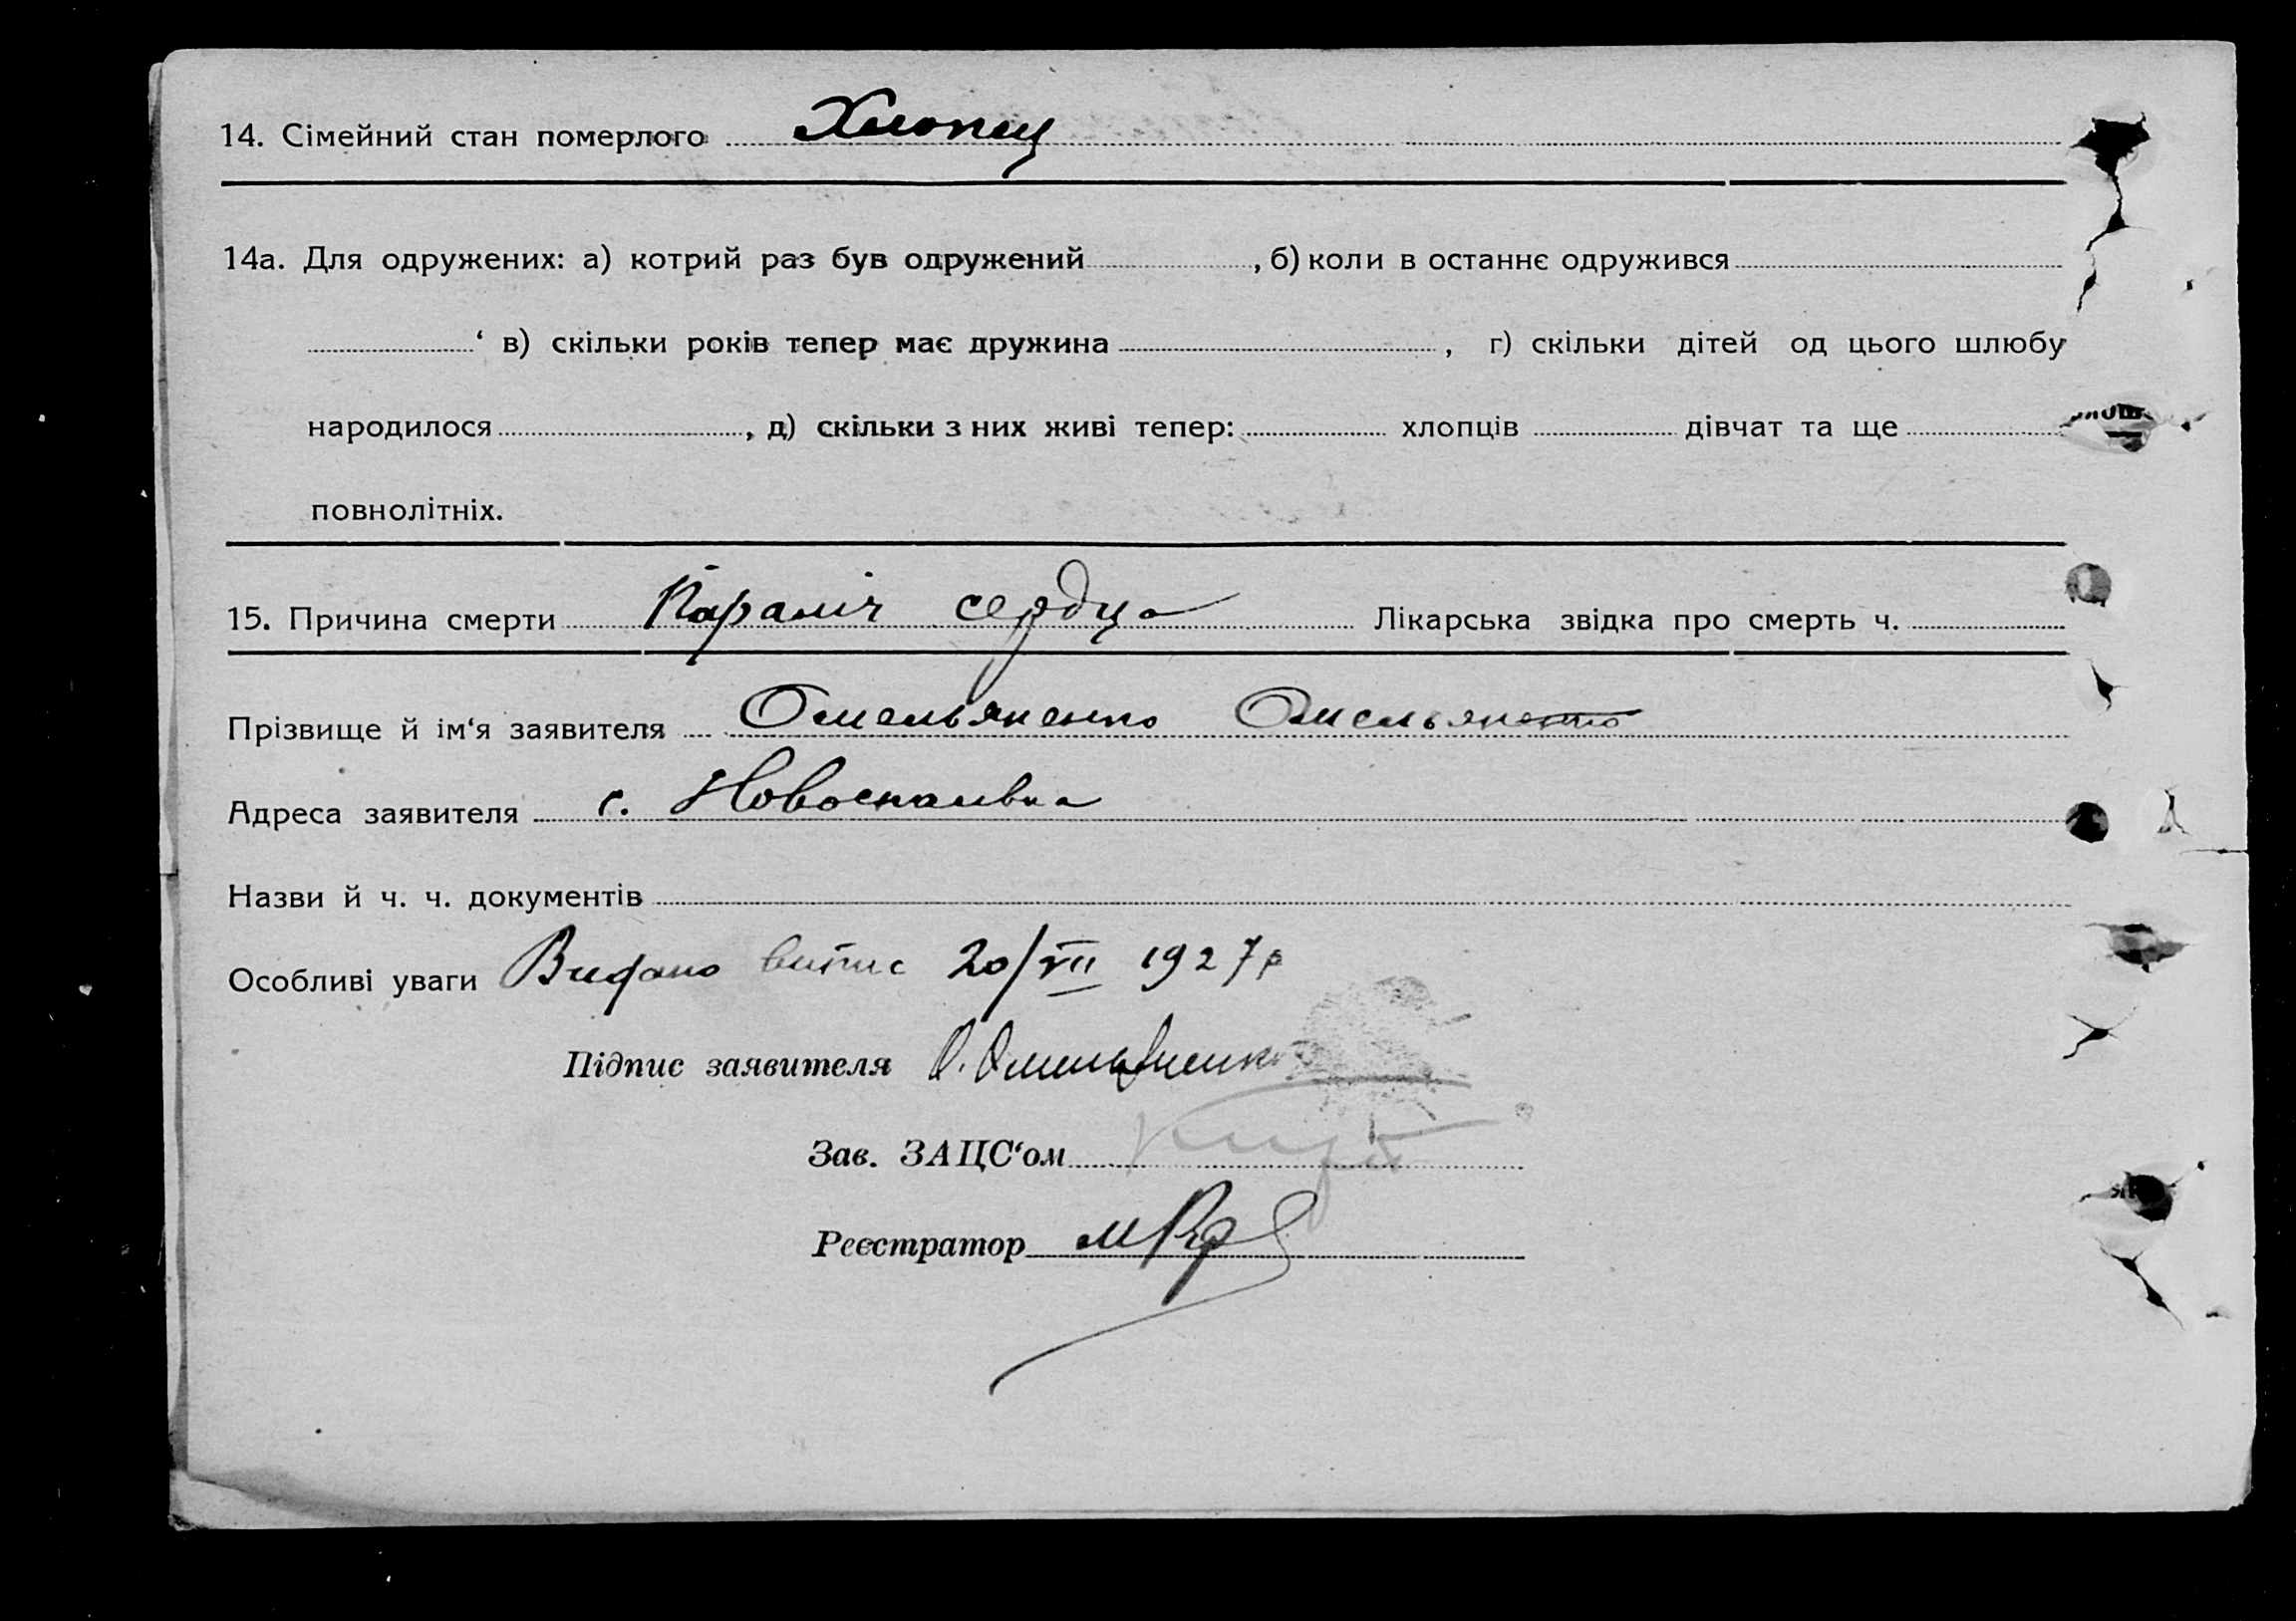 14. Сімейний стан померлого Хлопец
14а. Для одружених: а) котрий раз був одружений , б) коли в останнє одружився
‘ в) скільки років тепер має дружина , г) скільки дітей од цього шлюбу
народилося , д) скільки з них живі тепер: хлопців дівчат та ще
повнолітніх.
15. Причина смерти Параліч сердца Лікарська звідка про смерть ч.
Прізвище й ім‘я заявителя Омельяненко Омельяненко
Адреса заявителя с. Новоспаівка
Назви й ч. ч. документів
Особливі уваги Видано витис 20/VII 1927р
Підпис заявителя О. Омельяненко
Зав. ЗАЦС‘ом
Реєстратор